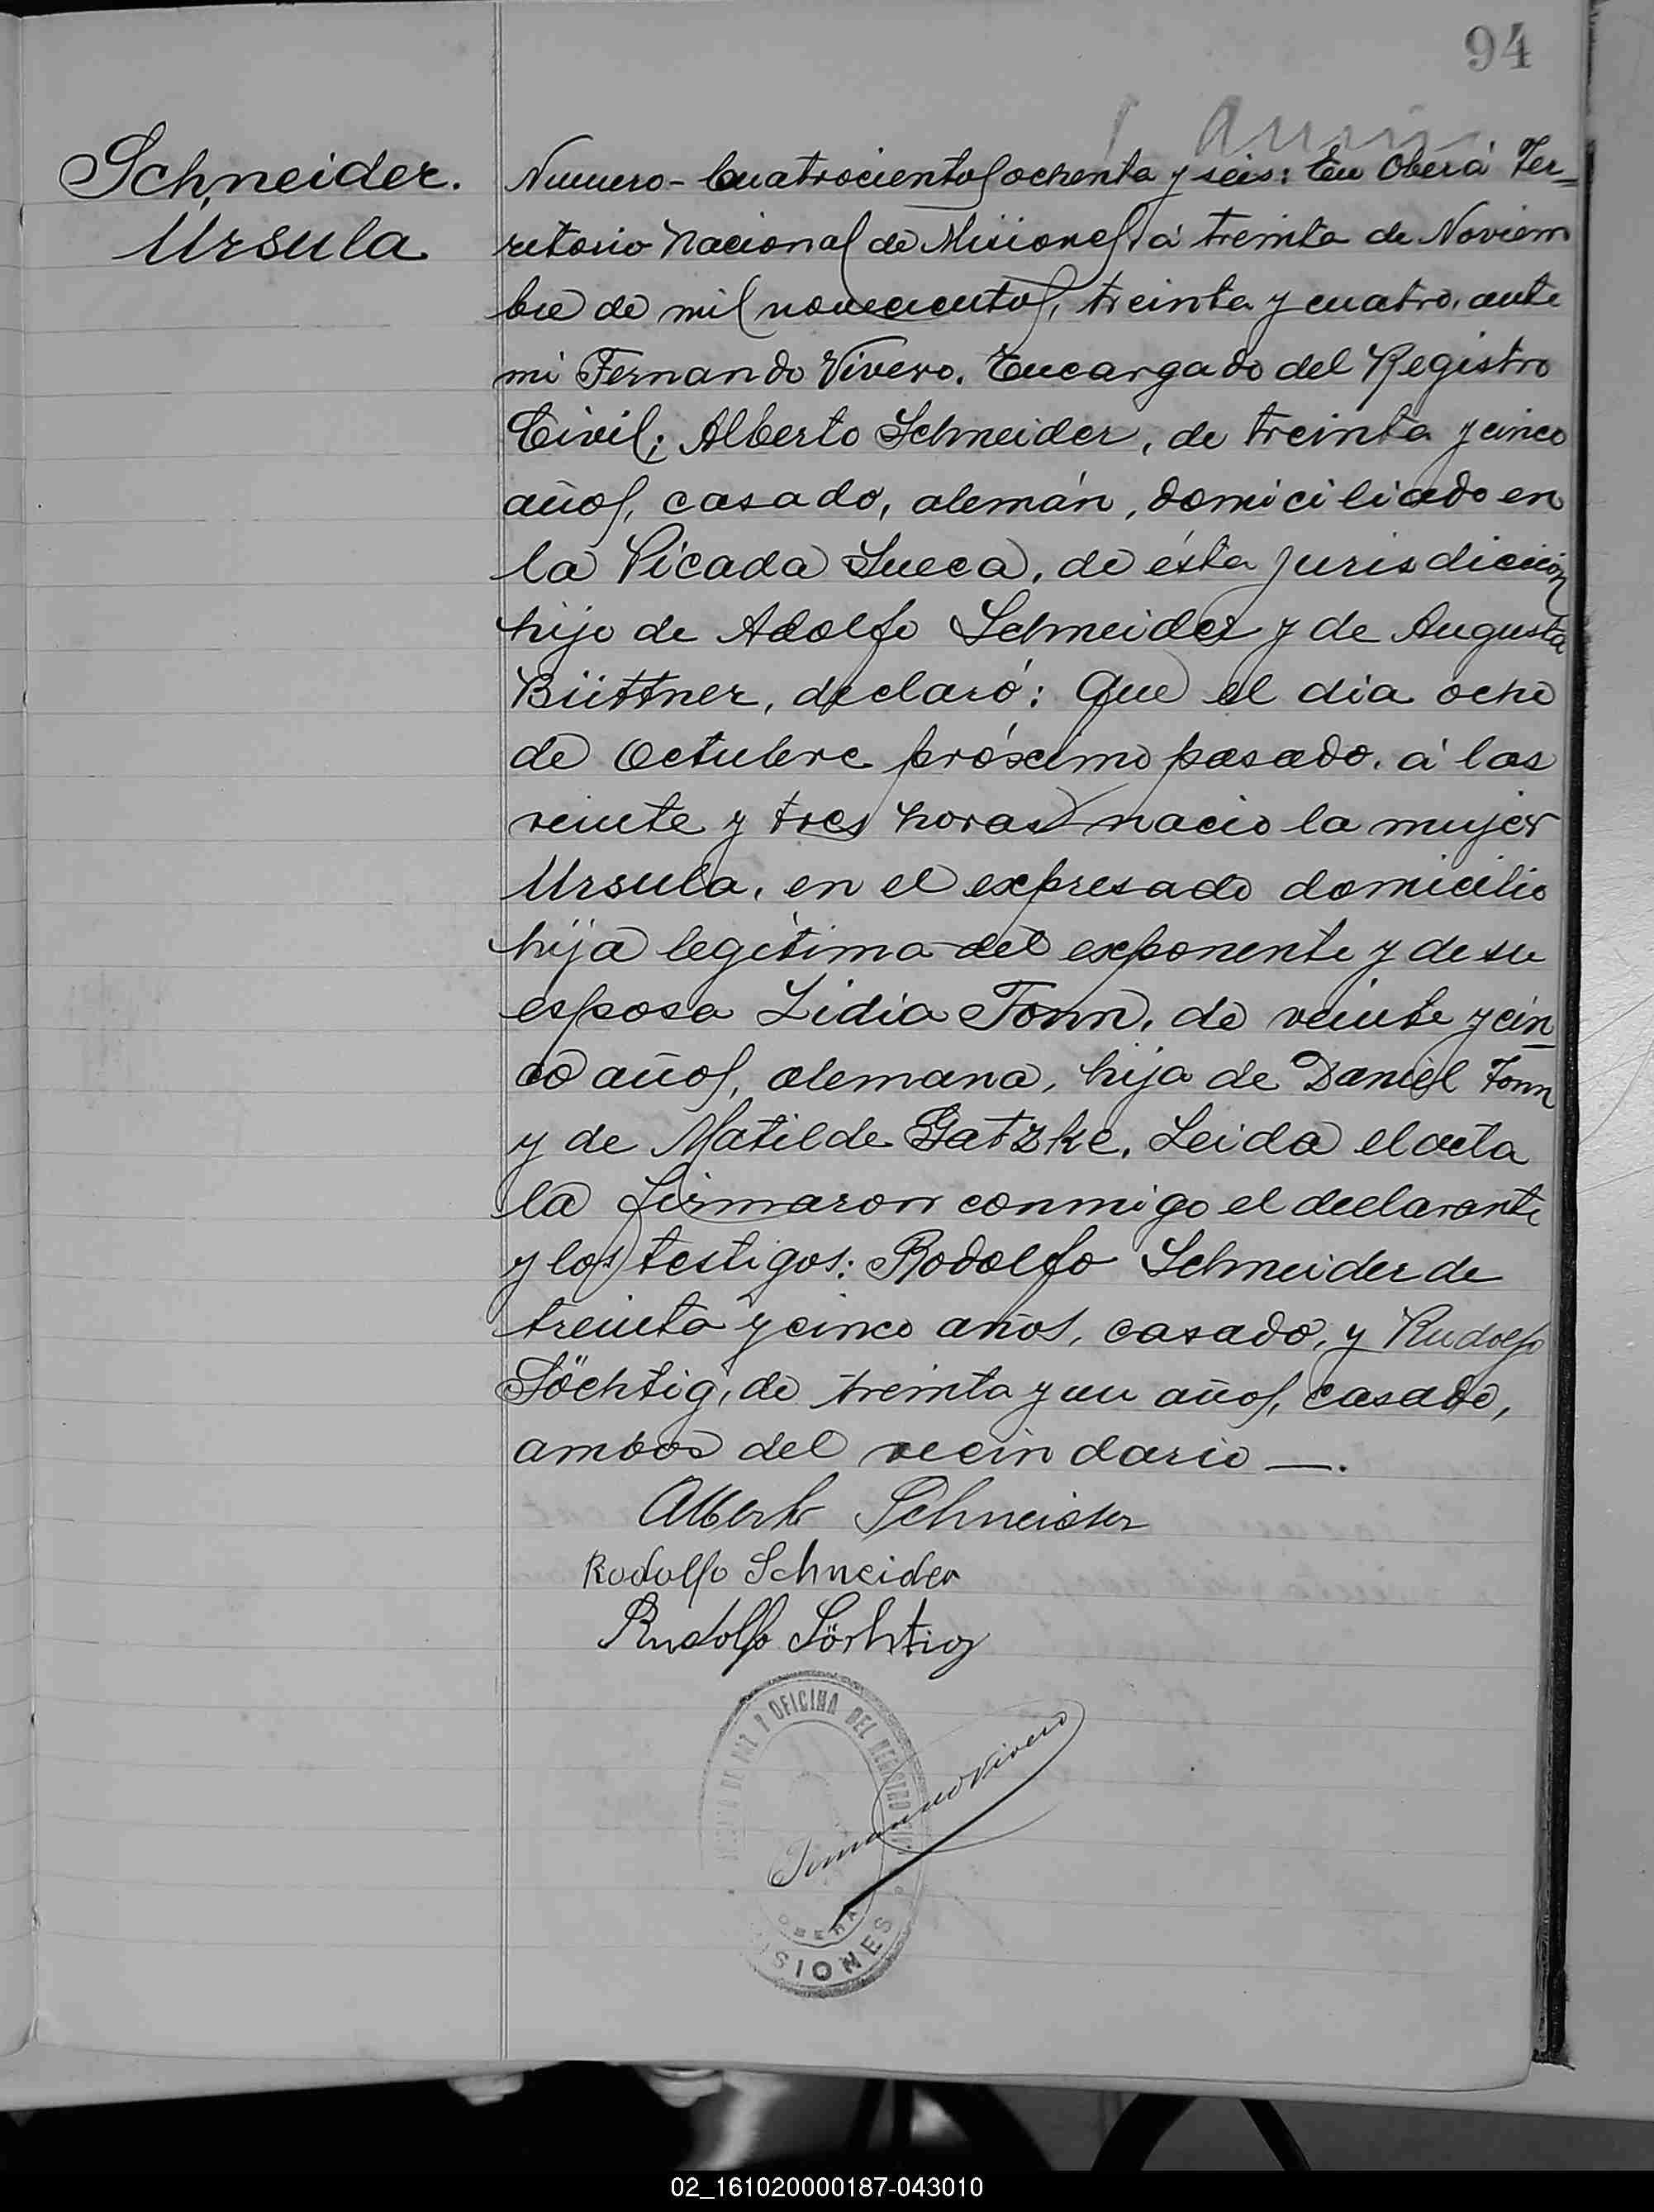 94
Schneider.
Ursula
Numero - Cuatrocientos ochenta y seis: En Oberá Ter=
ritorio Nacional de Misiones, á treinta de Noviem
bre de mil novecientos, treinta y cuatro, ante
mi Fernando Vivero. Encargado del Registro
Civil; Alberto Schneider, de treinta y cinco
años, casado, alemán, domiciliado en
la Picada Sueca, de ésta jurisdiccion
hijo de Adolfo Schneider y de Augusta
Büttner, declaró: Que el dia ocho
de Octubre próximo pasado, á las
veinte y tres horas nacio la mujer
Ursula, en el expresado domicilio
hija legitima del exponente y de su
esposa Lidia Tonn, de veinte y cin
co años, alemana, hija de Daniel Tonn
y de Matilde Gatzke. Leida el acta
la firmaron conmigo el declarante
y los testigos: Rodolfo Schneider de
treinta y cinco años, casado, y Rudolfo
Söchtig, de treinta y un años, casado,
ambos del vecindario —.
Albert Schneider
Rodolfo Schneider
Rudolfo Söchtig
DE PAZ Y OFICINA DEL REGISTRO
Fernando Vivero
OBERA
MISIONES
02_161020000187-043010